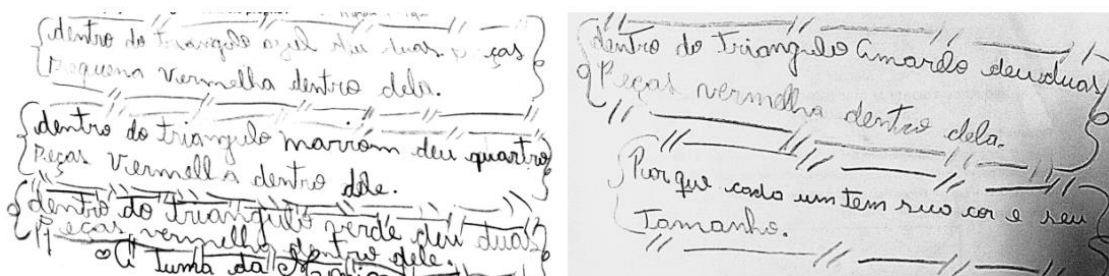 dentro do triangulo azul deu duas peças
Pequena vermelha dentro dela.
dentro do triangulo marrom deu quartro
Peças Vermella dentro dele.
dentro do triangulo verde deu duas
Peças vermelha dentro dele.
turma da
dentro do Triangulo Amarelo deu duas
Peças vermelha dentro dela.
Por que cada um tem sua cor e seu
Tamanho.